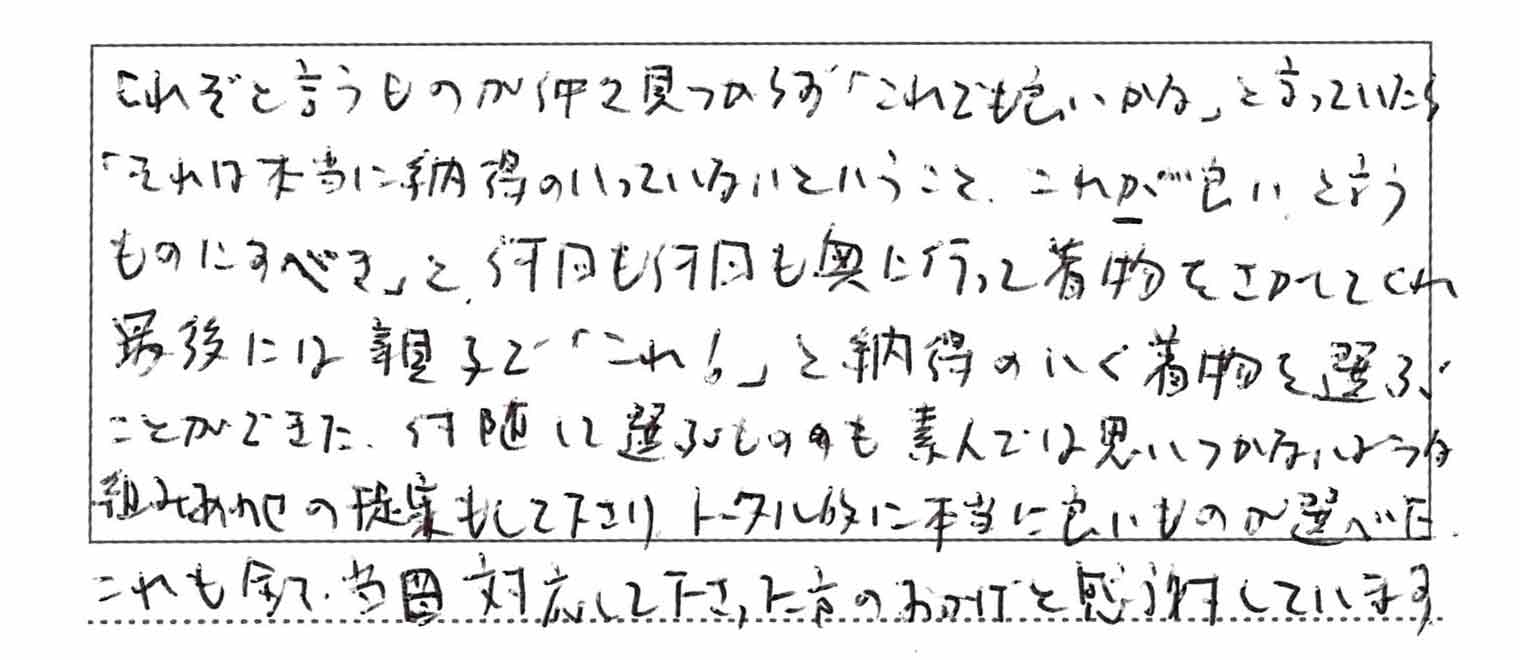 これぞと言うものが仲々見つからず「これでも良いかな」と言っていたら
「それは本当に納得のいっていないということ。これが良い、と言う
ものにすべき」と、何回も何回も奥に行って着物をさがしてくれ
最後には親子で「これ!」と納得のいく着物を選ぶ
ことができた。付随して選ぶものも素人では思いつかないような
組みあわせの提案もして下さり トータル的に本当に良いものが選べた。
これも全て、当日対応して下さった方のおかげと感謝しています